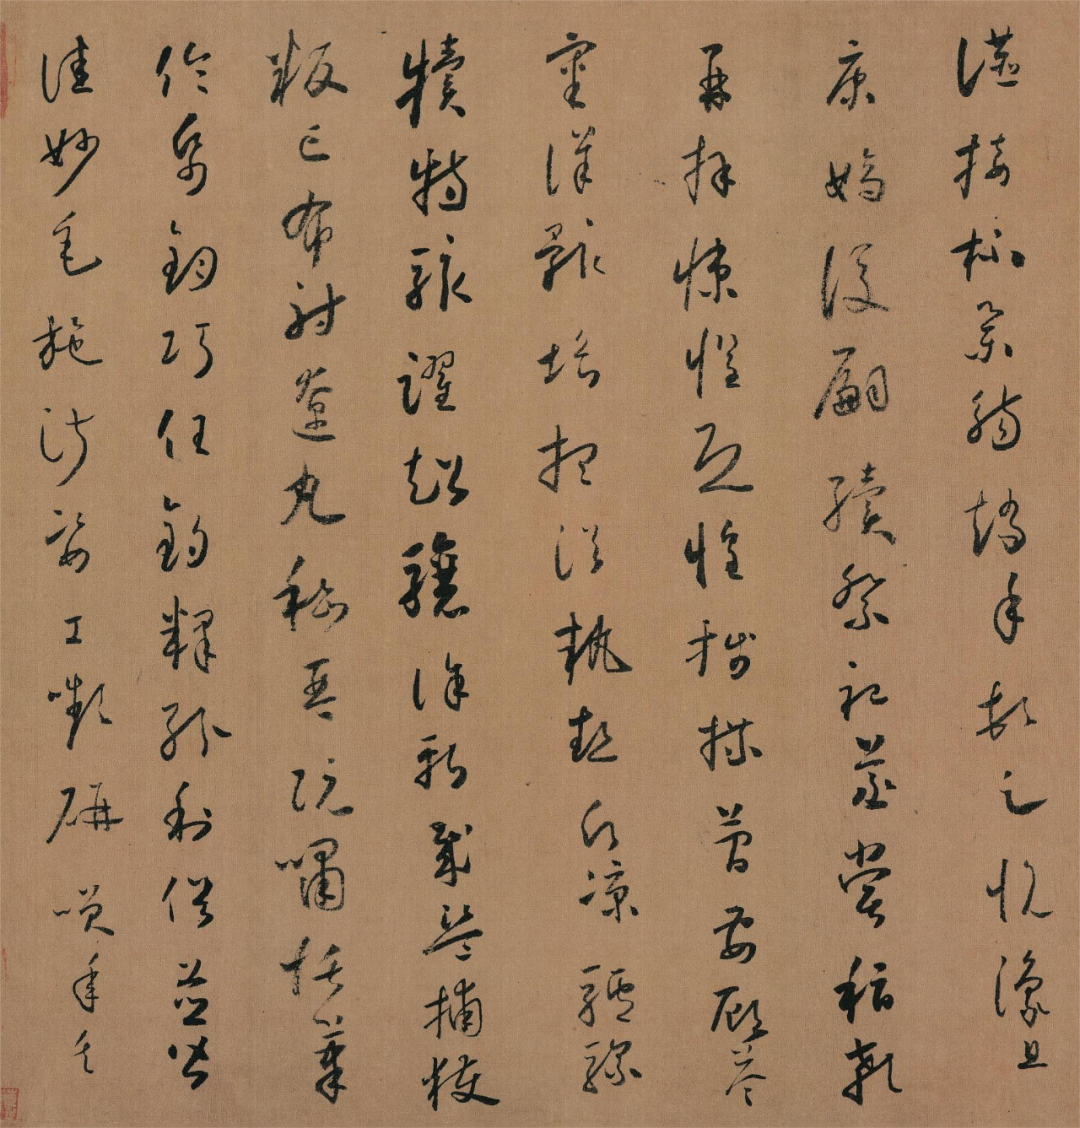 讌接杯舉觴矯手頓足悅豫且
康嫡後嗣續祭祀蒸嘗稽顙
再拜悚懼恐惶牋牒簡要顧答
審詳骸垢想浴執熱願涼驢騾
犢特駭躍超驤誅斬賊盜捕獲
叛亡布射遼丸嵇琴阮嘯恬筆
倫紙鈞巧任釣釋紛利俗並皆
佳妙毛施淑姿工顰妍笑年矢